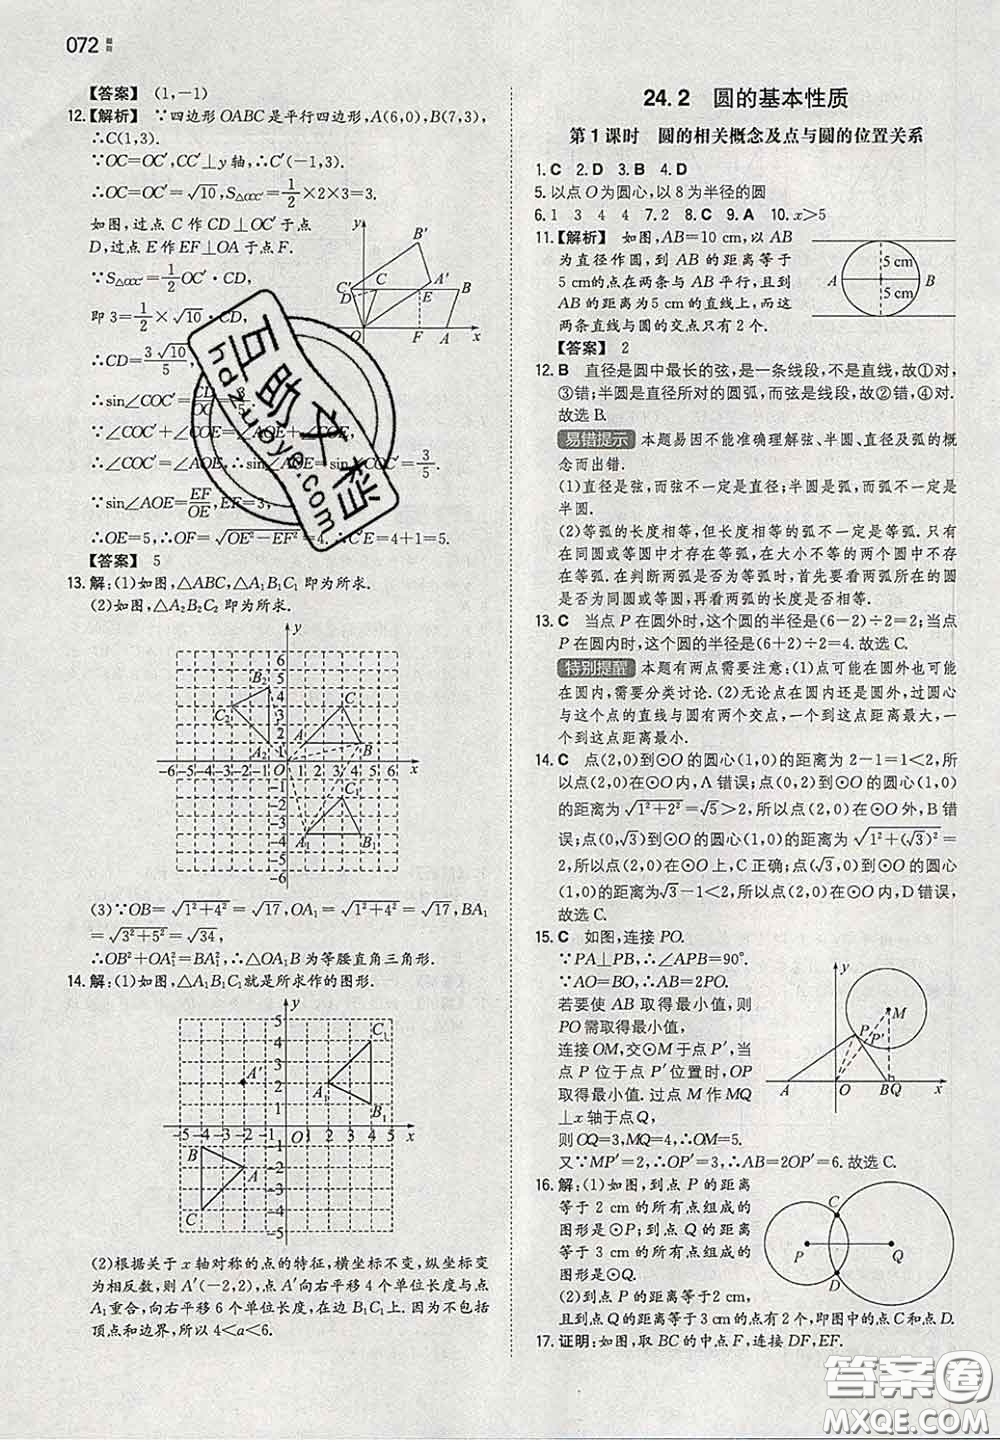 072
【答案】 (1,-1)
12.【解析】 ∵四边形OABC是平行四边形,A(6,0),B(7,3),
∴C(1,3).
∵OC=OC′,CC′⊥y轴,∴C′(-1,3).
∴OC=OC′=√10,S△OCC′=1/2×2×3=3.
如图,过点C作CD⊥OC′于点
D,过点E作EF⊥OA于点F.
∵S△OCC′=1/2OC′·CD,
即3=1/2×√10·CD,
∴CD=3√10/5.
∴sin∠COC′=
∵∠COC′+∠COE=∠AOE+∠COE,
∴∠COC′=∠AOE,∴sin∠AOE=sin∠COC′=3/5.
∵sin∠AOE=EF/OE,EF=3,
∴OE=5,∴OF=√OE²-EF²=4.∴C′E=4+1=5.
【答案】 5
13.解:(1)如图,△ABC,△A₁B₁C₁即为所求.
(2)如图,△A₂B₂C₂即为所求.
(3)∵OB=√1²+4²=√17,OA₁=√1²+4²=√17,BA₁
=√3²+5²=√34,
∴OB²+OA₁²=BA₁²,∴△OA₁B为等腰直角三角形.
14.解:(1)如图,△A₁B₁C₁就是所求作的图形.
(2)根据关于x轴对称的点的特征,横坐标不变,纵坐标变
为相反数,则A′(-2,2),点A′向右平移4个单位长度与点
A₁重合,向右平移6个单位长度,在边B₁C₁上.因为不包括
顶点和边界,所以4<a<6.
24.2 圆的基本性质
第1课时 圆的相关概念及点与圆的位置关系
1.C 2.D 3.B 4.D
5.以点O为圆心,以8为半径的圆
6.1 3 4 4 7.2 8.C 9.A 10.x>5
11.【解析】 如图,AB=10 cm,以AB
为直径作圆,到AB的距离等于
5 cm的点在两条与AB平行,且到
AB的距离为5 cm的直线上,而这
两条直线与圆的交点只有2个.
【答案】 2
12.B 直径是圆中最长的弦,是一条线段,不是直线,故①对,
③错;半圆是直径所对的圆弧,而弦是线段,故②错,④对.
故选B.
易错提示 本题易因不能准确理解弦、半圆、直径及弧的概
念而出错.
(1)直径是弦,而弦不一定是直径;半圆是弧,而弧不一定是
半圆.
(2)等弧的长度相等,但长度相等的弧不一定是等弧.只有
在同圆或等圆中才存在等弧,大小不等的两个圆中不存
在等弧.在判断两弧是否为等弧时,首先要看两弧所在的圆
是否为同圆或等圆,再看两弧的长度是否相等.
13.C 当点P在圆外时,这个圆的半径是(6-2)÷2=2;当点
P在圆内时,这个圆的半径是(6+2)÷2=4.故选C.
特别提醒 本题有两点需要注意:(1)点可能在圆外也可能
在圆内,需要分类讨论.(2)无论点在圆内还是圆外,过圆心
与这个点的直线与圆有两个交点,一个到这点距离最大,一
个到这点距离最小.
14.C 点(2,0)到⊙O的圆心(1,0)的距离为2-1=1<2,所
以点(2,0)在⊙O内,A错误;点(0,2)到⊙O的圆心(1,0)
的距离为√1²+2²=√5>2,所以点(2,0)在⊙O外,B错
误;点(0,√3)到⊙O的圆心(1,0)的距离为√1²+(√3)²=
2,所以点(2,0)在⊙O上,C正确;点(√3,0)到⊙O的圆心
(1,0)的距离为√3-1<2,所以点(2,0)在⊙O内,D错误,
故选C.
15.C 如图,连接PO.
∵PA⊥PB,∴∠APB=90°.
∵AO=BO,∴AB=2PO.
若要使AB取得最小值,则
PO需取得最小值,
连接OM,交⊙M于点P′,当
点P位于点P′位置时,OP
取得最小值.过点M作MQ
⊥x轴于点Q,
则OQ=3,MQ=4,∴OM=5.
又∵MP′=2,∴OP′=3,∴AB=2OP′=6.故选C.
16.解:(1)如图,到点P的距离
等于2 cm的所有点组成的
图形是⊙P;到点Q的距离
等于3 cm的所有点组成的
图形是⊙Q.
(2)到点P的距离等于2 cm,
且到点Q的距离等于3 cm的点有2个,即图中的点C,点D.
17.证明:如图,取BC的中点F,连接DF,EF.
互助文档
hdzuoye.com
答案圈
MXQE.COM